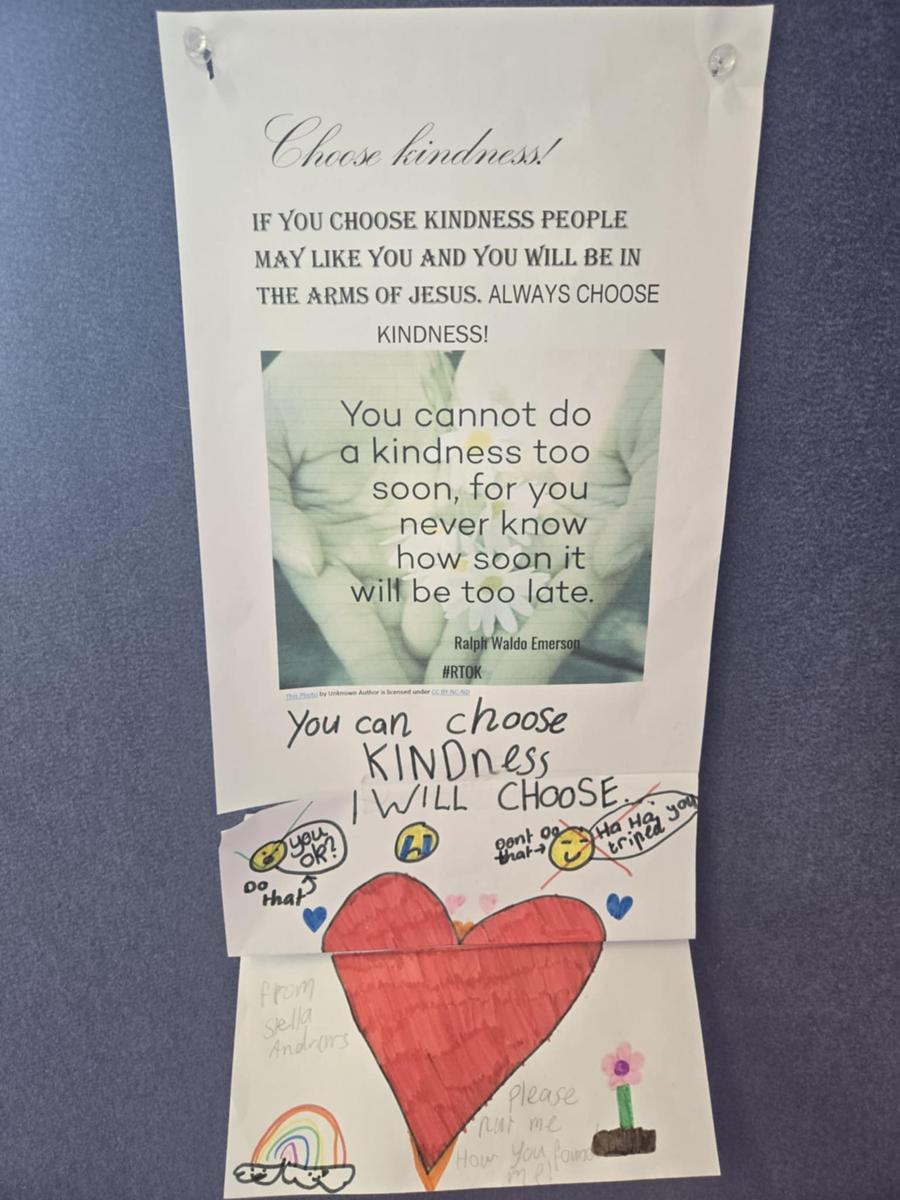 Choose kindness!
IF YOU CHOOSE KINDNESS PEOPLE
MAY LIKE YOU AND YOU WILL BE IN
THE ARMS OF JESUS. ALWAYS CHOOSE
KINDNESS!
You cannot do
a kindness too
soon, for you
never know
how soon it
will be too late.
Ralph Waldo Emerson
#RTOK
This Photo by Unknown Author is licensed under CC BY-NC-ND
You can choose
KINDness
I WILL CHOOSE.
you
OK?
Do
that
Dont Do
that
Ha Ha
triped you
from
Stella
please
me
How you found
me!